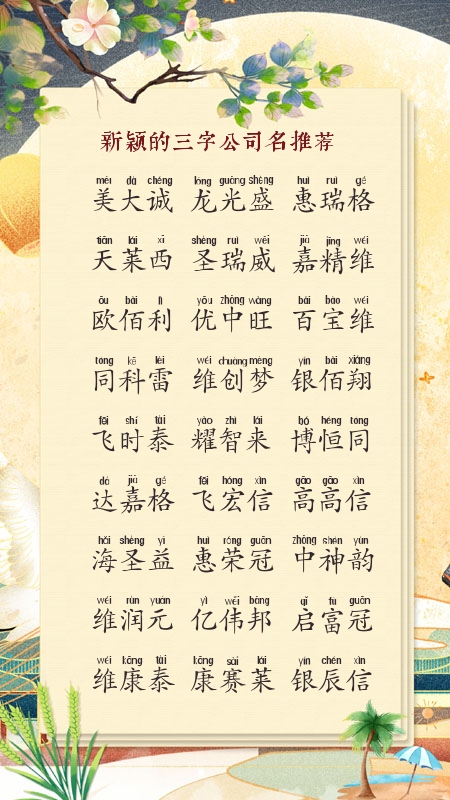 新颖的三字公司名推荐
měi dà chéng lóng guāng shèng huì ruì gé
美大诚 龙光盛 惠瑞格
tiān lái xī shèng ruì wēi jiā jīng wéi
天莱西 圣瑞威 嘉精维
ōu bǎi lì yōu zhōng wàng bǎi bǎo wéi
欧佰利 优中旺 百宝维
tóng kē léi wéi chuàng mèng yín bǎi xiáng
同科雷 维创梦 银佰翔
fēi shí tài yào zhì lái bó héng tóng
飞时泰 耀智来 博恒同
dá jiā gé fēi hóng xìn gāo gāo xìn
达嘉格 飞宏信 高高信
hǎi shèng yì huì róng guān zhōng shén yùn
海圣益 惠荣冠 中神韵
wéi rùn yuán yì wěi bāng qǐ fù guān
维润元 亿伟邦 启富冠
wéi kāng tài kāng sài lái yín chén xìn
维康泰 康赛莱 银辰信